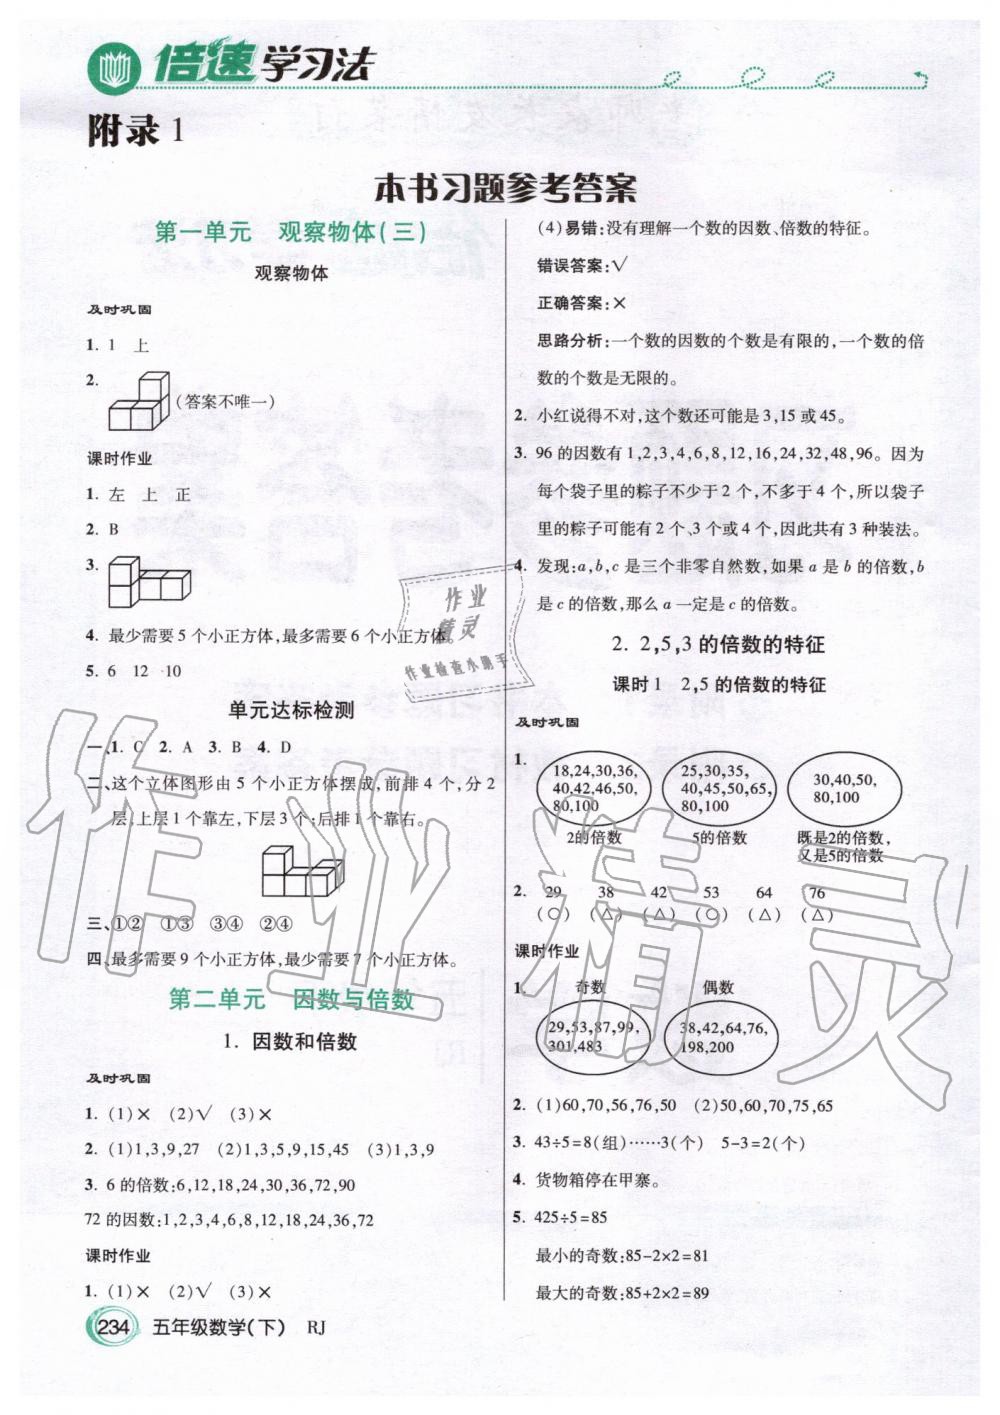 倍速学习法
附录1
本书习题参考答案
第一单元 观察物体(三)
观察物体
及时巩固
1. 1 上
2. (答案不唯一)
课时作业
1. 左 上 正
2. B
3.
4. 最少需要5个小正方体,最多需要6个小正方体。
5. 6 12 10
单元达标检测
一、1. C 2. A 3. B 4. D
二、这个立体图形由5个小正方体摆成,前排4个,分2
层,上层1个靠左,下层3个;后排1个靠右。
三、①② ①③ ③④ ②④
四、最多需要9个小正方体,最少需要7个小正方体。
第二单元 因数与倍数
1. 因数和倍数
及时巩固
1. (1)× (2)√ (3)×
2. (1)1,3,9,27 (2)1,3,5,9,15,45 (3)1,3,9
3. 6的倍数:6,12,18,24,30,36,72,90
72的因数:1,2,3,4,6,8,12,18,24,36,72
课时作业
1. (1)× (2)√ (3)×
(4)易错:没有理解一个数的因数、倍数的特征。
错误答案:√
正确答案:×
思路分析:一个数的因数的个数是有限的,一个数的倍
数的个数是无限的。
2. 小红说得不对,这个数还可能是3,15或45。
3. 96的因数有1,2,3,4,6,8,12,16,24,32,48,96。因为
每个袋子里的粽子不少于2个,不多于4个,所以袋子
里的粽子可能有2个、3个或4个,因此共有3种装法。
4. 发现:a,b,c是三个非零自然数,如果a是b的倍数,b
是c的倍数,那么a一定是c的倍数。
2. 2,5,3的倍数的特征
课时1 2,5的倍数的特征
及时巩固
1. 18,24,30,36, 25,30,35, 30,40,50,
40,42,46,50, 40,45,50,65, 80,100
80,100 80,100
2的倍数 5的倍数 既是2的倍数,
又是5的倍数
2. 29 38 42 53 64 76
(○) (△) (△) (○) (△) (△)
课时作业
1. 奇数 偶数
29,53,87,99, 38,42,64,76,
301,483 198,200
2. (1)60,70,56,76,50 (2)50,60,70,75,65
3. 43÷5=8(组)……3(个) 5-3=2(个)
4. 货物箱停在甲寨。
5. 425÷5=85
最小的奇数:85-2×2=81
最大的奇数:85+2×2=89
234 五年级数学(下) RJ
作业精灵
作业
精灵
作业检查小助手